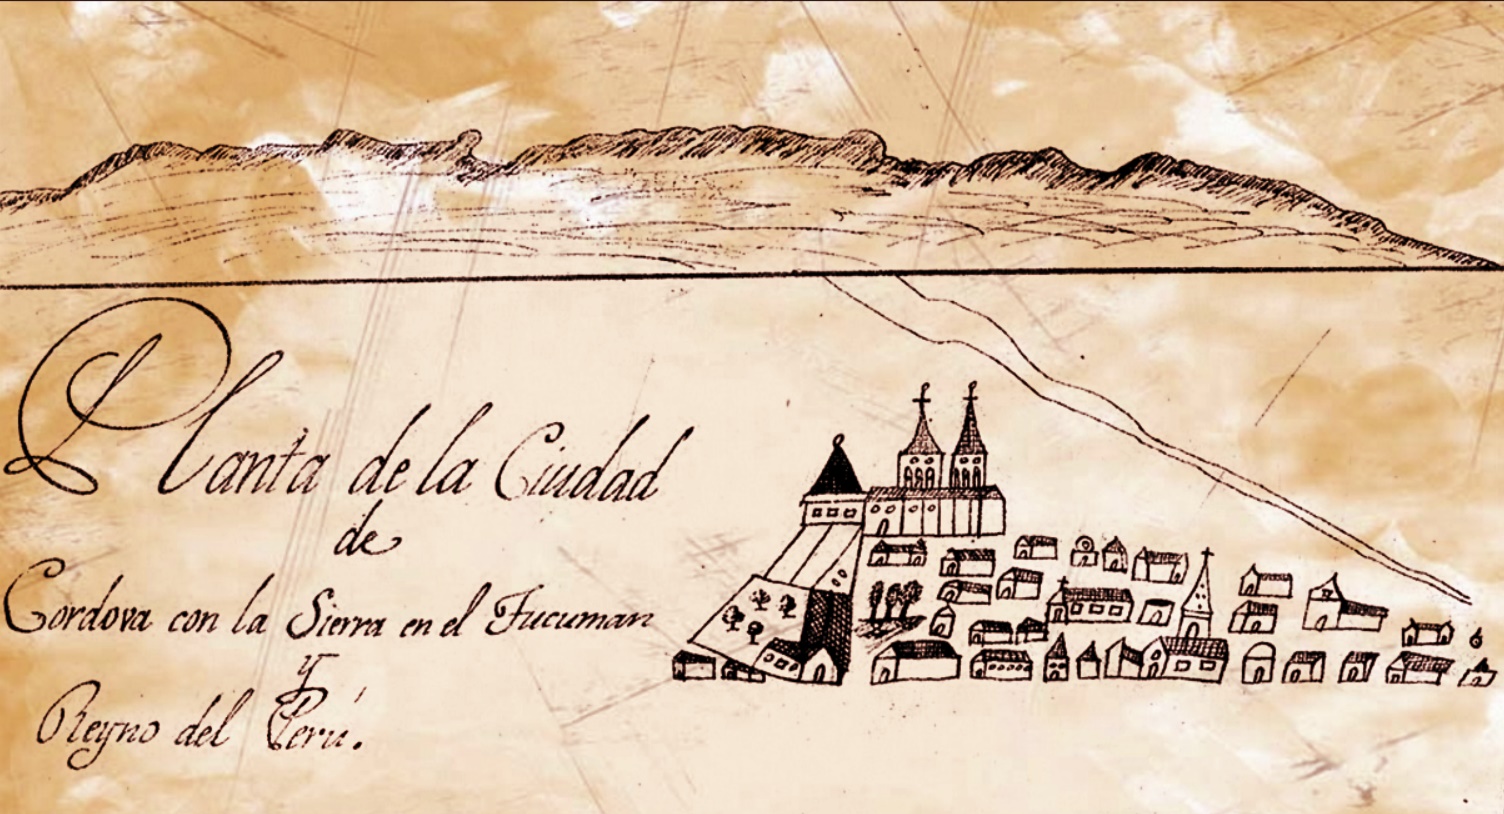 Planta de la Ciudad
de
Cordova con la Sierra en el Tucuman
y
Reyno del Perú.